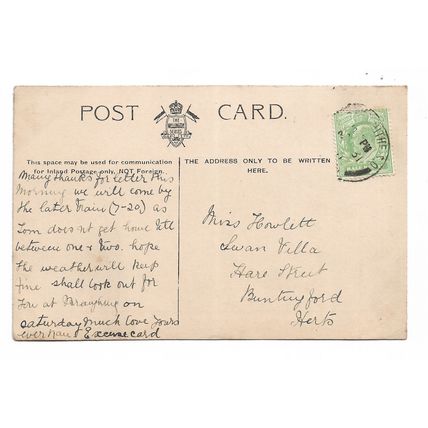 POST CARD.
THE WRENCH SERIES
This space may be used for communication
for Inland Postage only, NOT Foreign.
THE ADDRESS ONLY TO BE WRITTEN
HERE.
Many thanks for letter this
Morning we will come by
the later train (7-20) as
Tom does not get home till
between one & two. hope
the weather will keep
fine shall look out for
you at Braughing on
saturday much love yours
ever Nan Excuse card
Miss Howlett
Swan Villa
Hare Street
Buntingford
Herts
PM